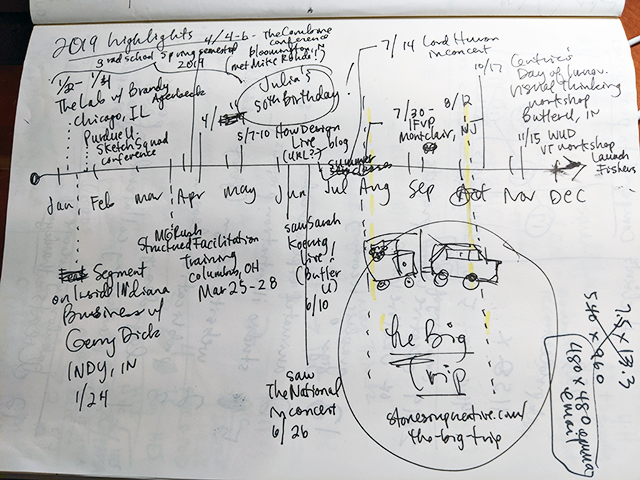 2019 highlights
3rd school spring semester
2019
4/4-6 - The Combine
conference
bloomington, IN
(met Mike Rohde!)
1/2- 1/31
The Lab w/ Brandy
Agerbeck
Chicago, IL
Purdue U.
Sketch Squad
conference
Julia's
50th Birthday
4/
5/7-10 How Design
Live
blog
7/14 Lord Huron
in concert
7/30 - 8/12
IFVP
Montclair, NJ
10/17
Centric's
Day of Innov.
Visual Thinking
workshop
Butler U, IN
11/15 WUD
VT workshop
Launch
Fishers
summer
Jan Feb mar Apr may Jun Jul Aug Sep Oct Nov DEC
Segment
on Inside INdiana
Business w/
Gerry Dick
INDY, IN
1/24
McRush
Structured Facilitation
Training
Columbus, OH
Mar 25-28
saw Sarah
Koenig
live!
(Butler
U)
6/10
saw
The National
in concert
6/26
The Big
Trip
stonesoupcreative.com/
the-big-trip
7.5 x 13.3
540 x 960
480 x 480
email